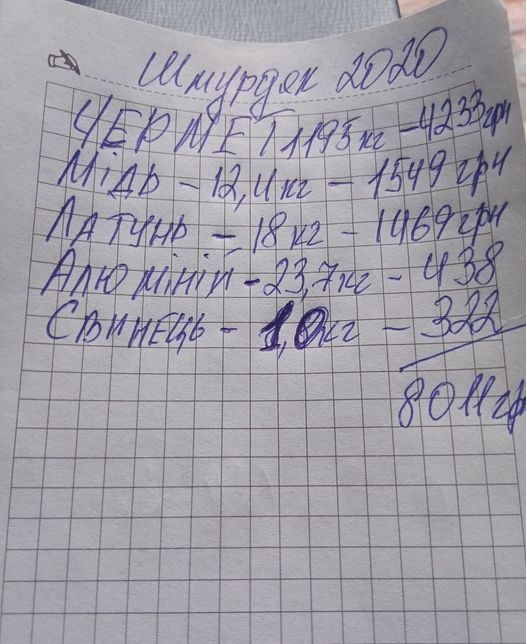 Шмурдяк 2020
ЧЕРМЕТ 1195кг - 4233грн
Мідь - 12,4кг - 1549грн
Латунь - 18кг - 1469грн
Алюміній - 23,7кг - 438
Свинець - 10кг - 322
8011грн